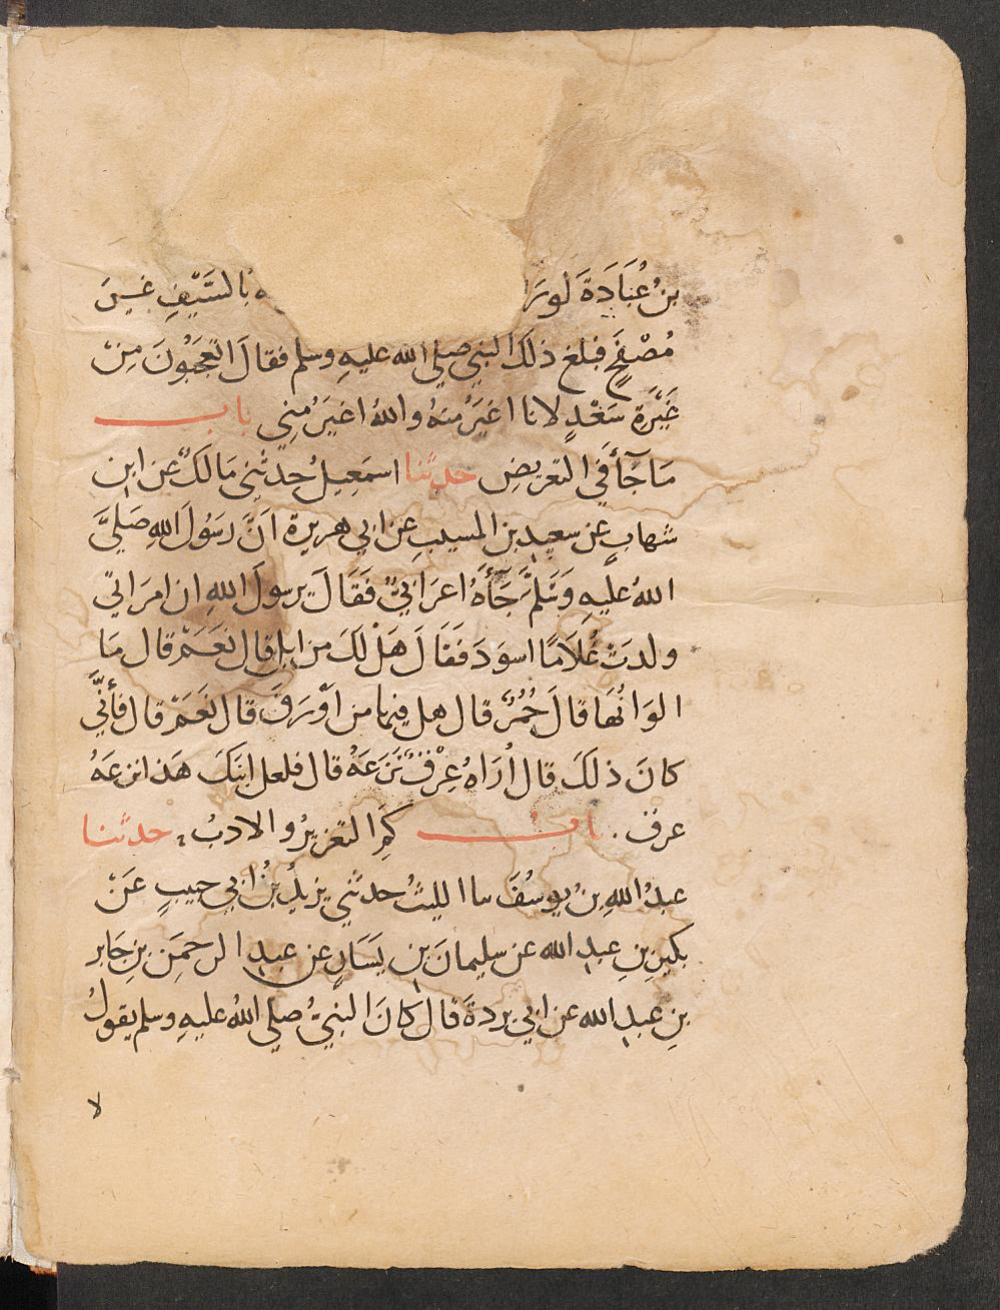 بنُ عُبَادَةَ لو رَ ه بالسَّيْفِ غيرَ
مُصْفَحٍ فبلغ ذلكَ النبي صلى الله عليه وسلم فقالَ اتعجَبُونَ مِنْ
غَيْرَة سَعْدٍ لانا اغيَرُ منهُ والله اغيَرُ مِنِي باب
مَا جَآءَ في التعريضِ حدثنا اسمعيلُ حدثني مَالكٌ عن ابن
شهابٍ عن سعيد بن المسيبِ عن ابي هريرة انَّ رسُولَ اللهِ صَلىَّ
اللهُ عليهِ وَسَلمَّ جَآءَهُ اعرَابيٌّ فَقَالَ يرسولَ اللهِ ان امرَاتي
ولدتْ غُلاَمًا اسوَدَ فَقَالَ هَلْ لكَ من ابلٍ قال نَعَمْ قال مَا
الوَانُهَا قالَ حُمُرٌ قال هل فيها من اوْرَقَ قال نَعَمْ قال فأنَّي
كانَ ذلكَ قال اُرَاهُ عِرْقٌ نَزَعَهُ قال فلعل ابنَكَ هَذا نزعَهُ
عرق . باب كَمِ التعزيرُ والادبُ ، حدثنا
عبدُ اللهِ بنُ يوسُفَ سا الليثُ حدثني يزيدُ بنُ ابي حبيبٍ عَنْ
بكيرِ بنِ عبدِ الله عن سليمانَ بنِ يَسَارٍ عن عبدِ الرحمَنِ بنِ جَابر
بنِ عبدِ الله عن ابي بردةَ قال كانَ النبيُّ صلى اللهُ عليهِ وسلم يقولُ
لا